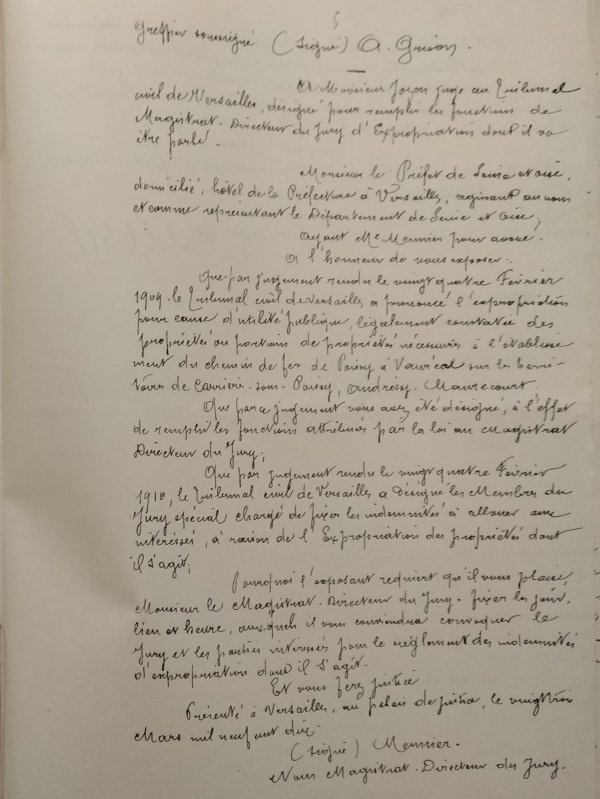 5
Greffier soussigné (signé) A. Grison.
A Monsieur Joson juge au Tribunal
civil de Versailles, désigné pour remplir les fonctions de
Magistrat-Directeur du Jury d'Expropriation dont il va
être parlé.
Monsieur le Préfet de Seine et oise,
domicilié, hôtel de la Préfecture à Versailles, agissant au nom
et comme représentant le Département de Seine et Oise;
Ayant Me Meunier pour avoué.
A l'honneur de vous exposer:
Que par jugement rendu le vingt quatre Février
1909. le Tribunal civil de Versailles a prononcé l'expropriation
pour cause d'utilité publique, légalement constatée des
propriétés ou portions de propriétés nécessaires à l'établisse
ment du chemin de fer de Poissy à Vauréal sur les terri-
toires de Carrières-sous-Poissy, Andrésy, Maurecourt.
Que par ce jugement vous avez été désigné, à l'effet
de remplir les fonctions attribuées par la loi au Magistrat
Directeur du Jury;
Que par jugement rendu le vingt quatre Février
1910, le Tribunal civil de Versailles a désigné les Membres du
Jury spécial chargé de fixer les indemnités à allouer aux
intéressés, à raison de l'Expropriation des propriétés dont
il s'agit;
Pourquoi l'exposant requiert qu'il vous plaise,
Monsieur le Magistrat-Directeur du Jury. fixer les jour,
lieu et heure, auxquels il vous conviendra convoquer le
Jury et les parties intéressés pour le règlement des indemnités
d'expropriation dont il s'agit.
Et vous ferez justice
Présenté à Versailles, au palais de justice, le vingt trois
Mars mil neuf cent dix.
(signé) Meunier.
Nous Magistrat-Directeur du Jury.